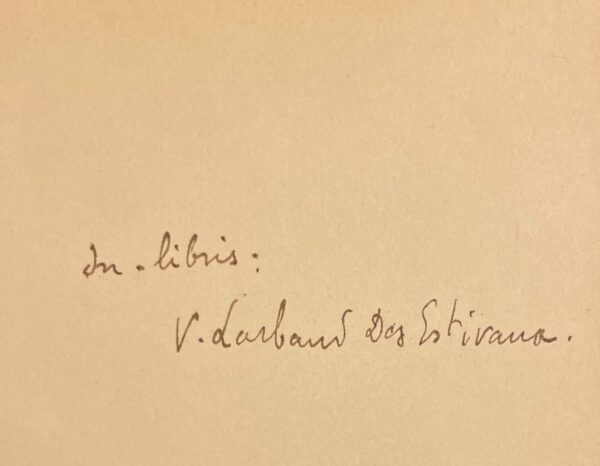 In-libris:
V. Larbaud Des Estivaux.